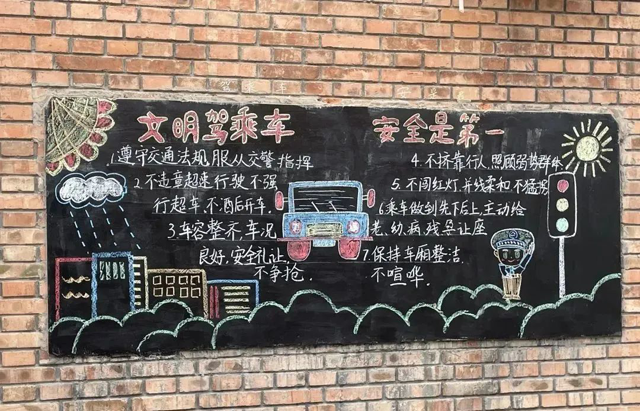 文明驾乘车
安全是第一
1.遵守交通法规服从交警指挥
2.不违章超速行驶不强
行超车.不酒后开车.
3.车容整齐,车况
良好,安全礼让.
不争抢.
4.不挤靠行人,照顾弱势群体
5.不闯红灯,并线柔和不猛拐
6.乘车做到先下后上,主动给
老.幼.病.残.孕让座
7.保持车厢整洁.
不喧哗.